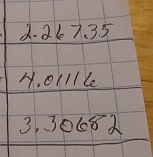 2.267.35
4.01116
3.30652